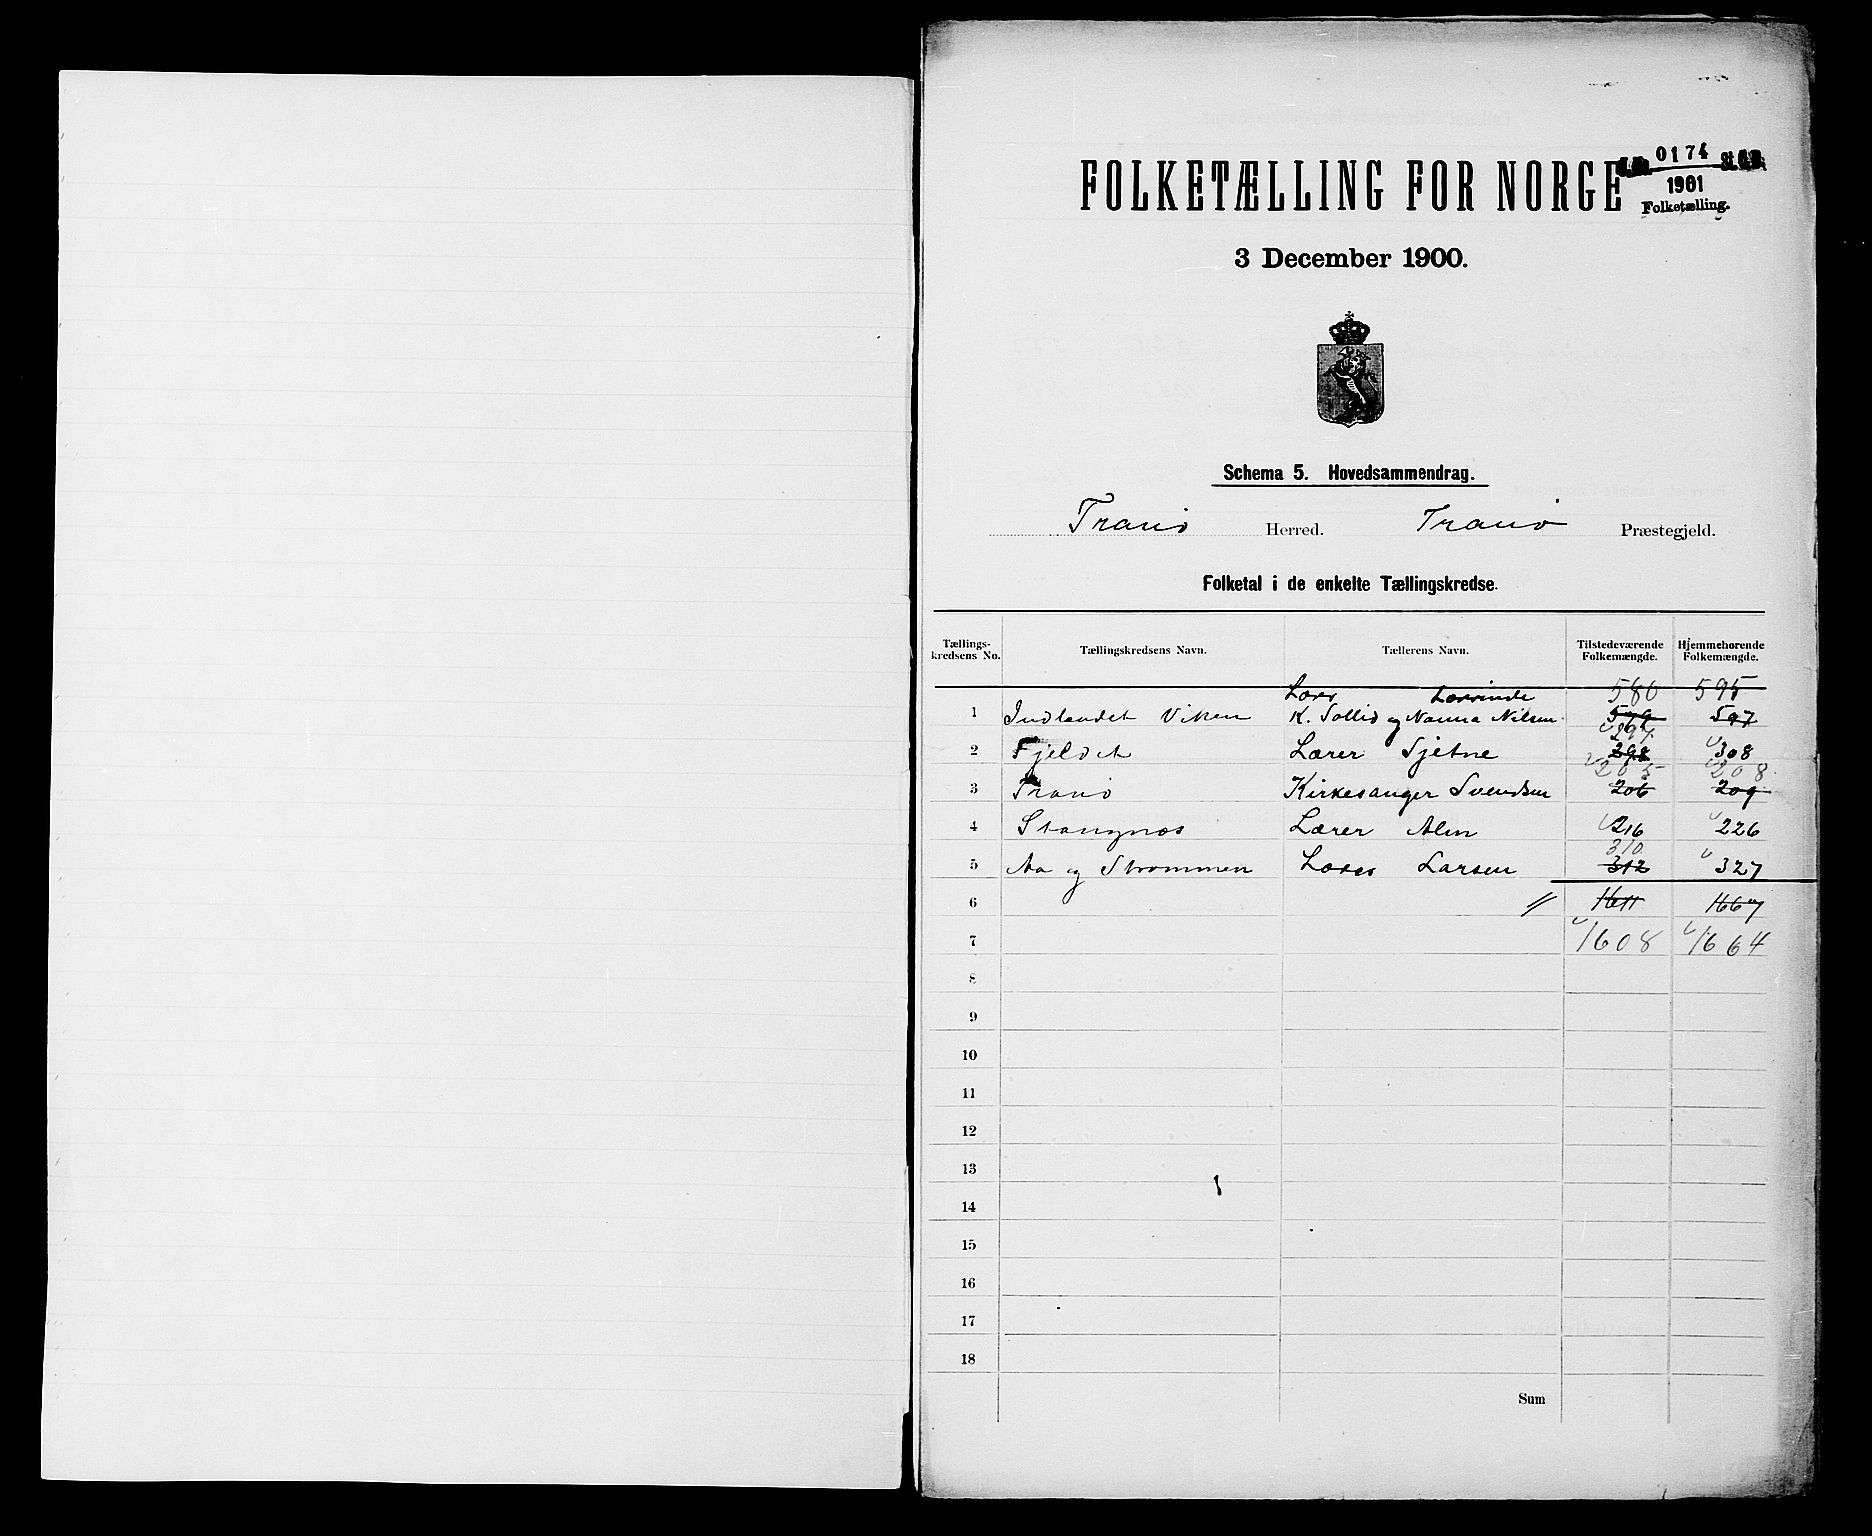 FOLKETÆLLING FOR NORGE
0174
1901
Folketælling.
3 December 1900.
Schema 5. Hovedsammendrag.
Tranö Herred. Tranö Præstegjeld.
Folketal i de enkelte Tællingskredse.
Tællings-kredsens No. Tællingskredsens Navn. Tællerens Navn. Tilstedeværende Folkemængde. Hjemmehørende Folkemængde.
580 595
1 Indlandet Viken K. Sollid og Nanna Nilsen 597
297
2 Fjeldet Lærer Sjetne 298 308
205 208
3 Tranö Kirkesanger Svendsen 206 209
4 Stangnæs Lærer Alm 216 226
310
5 Aa og Strømmen Lærer Larsen 312 327
6 1611 1667
7 1608 1664
8
9
10
11
12
13
14
15
16
17
18
Sum